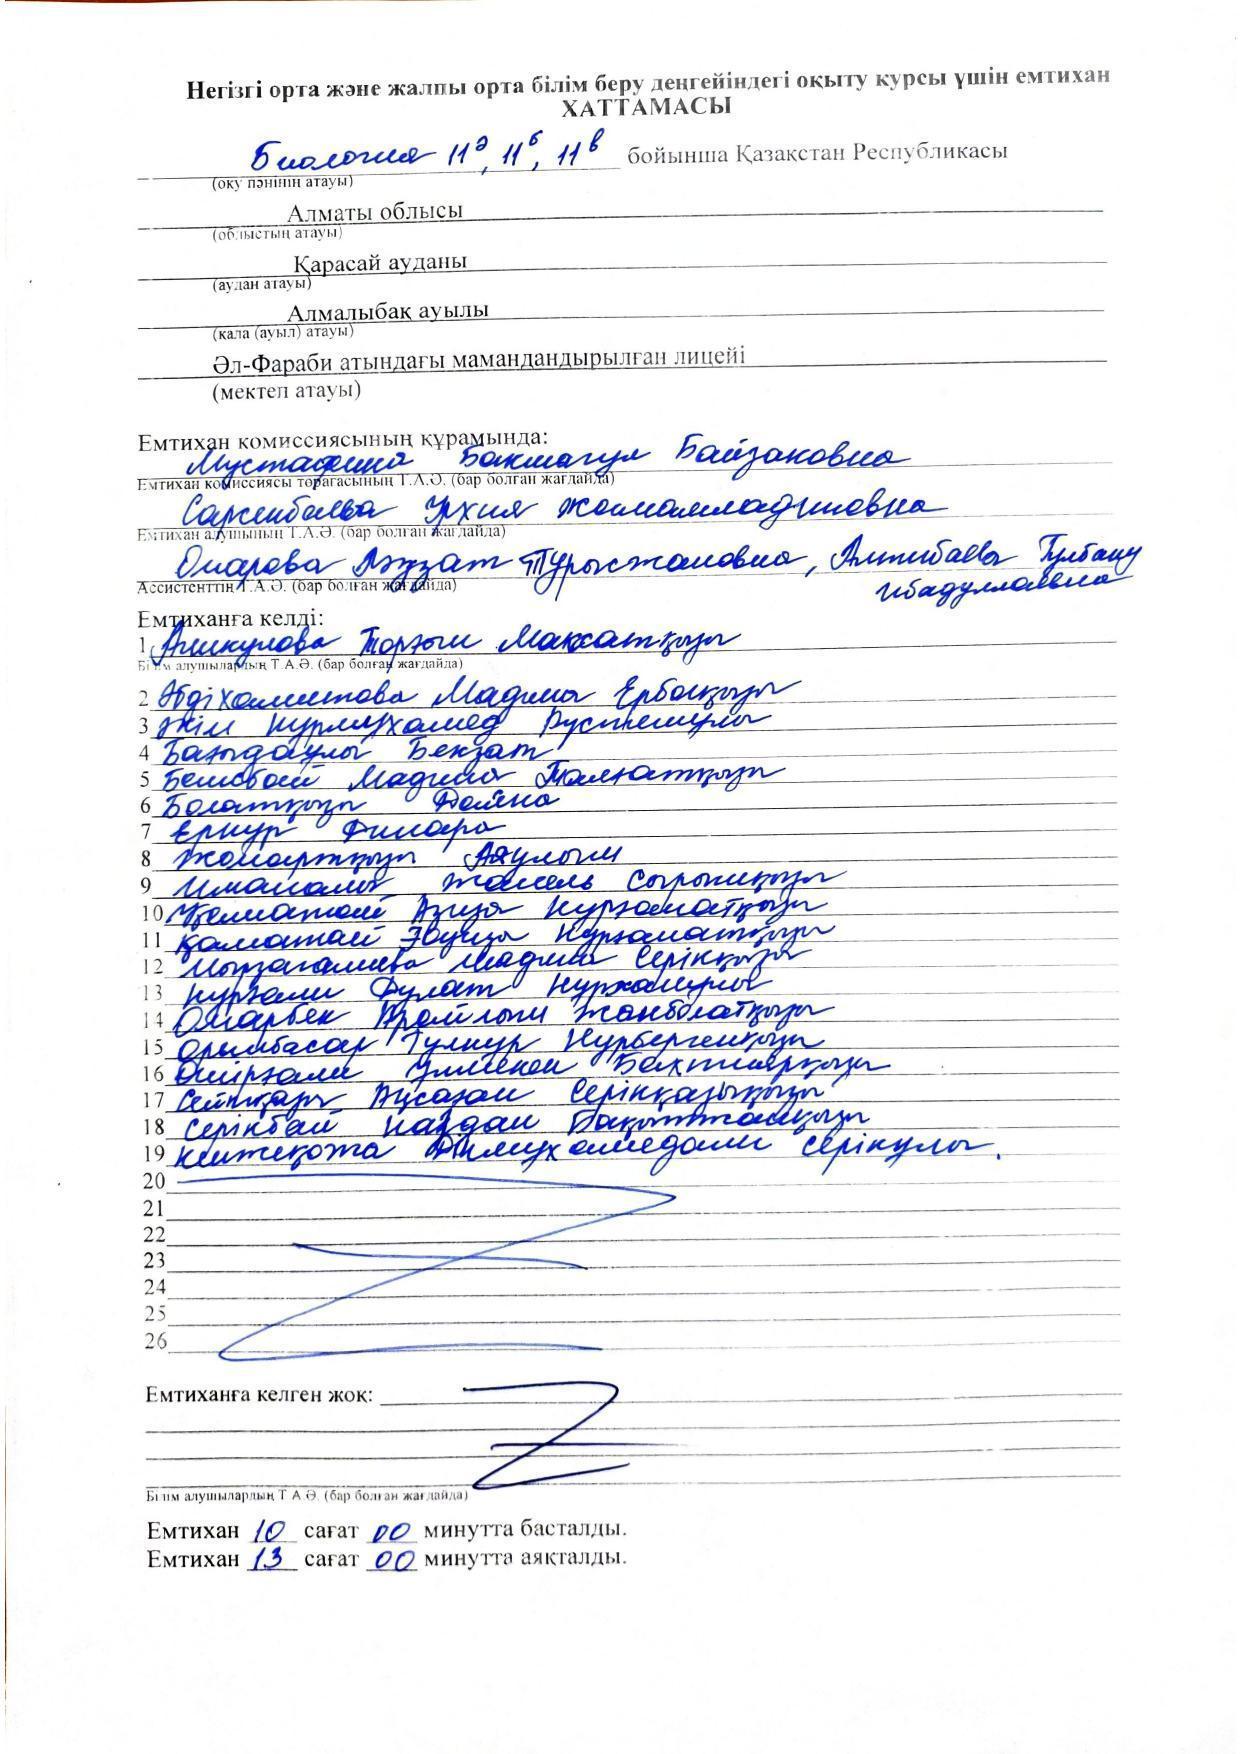 Негізгі орта және жалпы орта білім беру деңгейіндегі оқыту курсы үшін емтихан
ХАТТАМАСЫ
Биология 11ә, 11б, 11в бойынша Қазақстан Республикасы
(оқу пәнінің атауы)
Алматы облысы
(облыстың атауы)
Қарасай ауданы
(аудан атауы)
Алмалыбақ ауылы
(қала (ауыл) атауы)
Әл-Фараби атындағы мамандандырылған лицейі
(мектеп атауы)
Емтихан комиссиясының құрамында:
Мустафина Бакмагул Байзаковна
Емтихан комиссиясы төрағасының Т.А.Ә. (бар болған жағдайда)
Сарсенбаева Урхия
Емтихан алушының Т.А.Ә. (бар болған жағдайда)
Омарова Ләззат Турысжановна, Алтибаева Гулбану
Ибадуллаевна
Ассистенттің Т.А.Ә. (бар болған жағдайда)
Емтиханға келді:
1 Ашкулова Торғын Мақсатқызы
Білім алушылардың Т.А.Ә. (бар болған жағдайда)
2 Мадина Ерболқызы
3 Әкім Нурмухамед Рустемұлы
4 Бағыдаулы Бекзат
5 Бейсбай Мадина Талғатқызы
6 Болатқызы Дайна
7 Ернұр Динара
8 Жомартқызы Аяулым
9 Иманалы Жанель Сырымқызы
10 Азиза Нұрғаматқызы
11 Қаматай Нұрғаматқызы
12 Мырзағалиева Мадина Серікқызы
13 Нұрғали Дулат Нұрханұлы
14 Омарбек Жанболатқызы
15 Орынбасар Гүлнұр Нұрбергенқызы
16 Өмірғали Улмекен Бахтиярқызы
17 Ақсазан Серікқазықызы
18 Серікбай Назлан Бақытжанқызы
19 Серікұлы.
20
21
22
23
24
25
26
Емтиханға келген жоқ:
Білім алушылардың Т.А.Ә. (бар болған жағдайда)
Емтихан 10 сағат 00 минутта басталды.
Емтихан 13 сағат 00 минутта аяқталды.